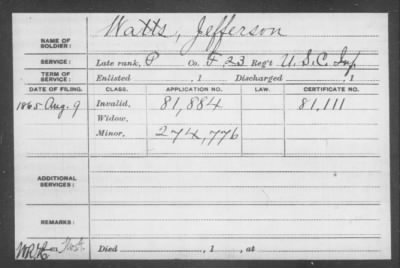 NAME OF SOLDIER: Watts, Jefferson
SERVICE: Late rank, P Co. F 23 Reg't U. S. C. Inf
TERM OF SERVICE: Enlisted , 1 Discharged , 1
DATE OF FILING. CLASS. APPLICATION NO. LAW. CERTIFICATE NO.
1865 Aug. 9 Invalid, 81,884 81,111
Widow,
Minor, 274,776
ADDITIONAL SERVICES:
REMARKS:
Died , 1 , at